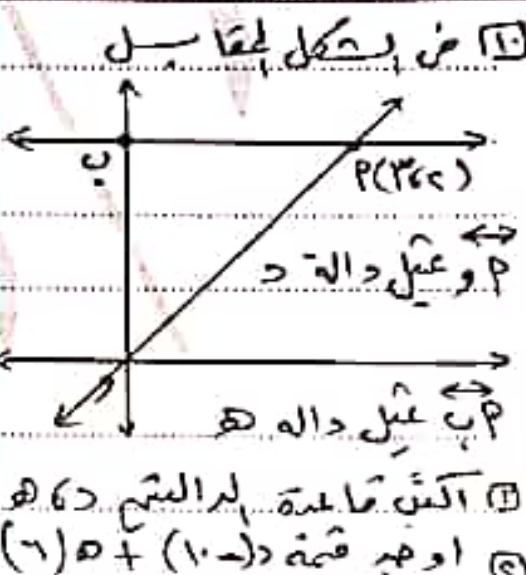 ١٠ في الشكل المقابل
ب
أ(٢،٣)
أو يمثل دالة د
و
أب يمثل داله ه
١ اكتب قاعدة الدالتين د، ه
٢ اوجد قيمة د(-١٠) + ه(٦)